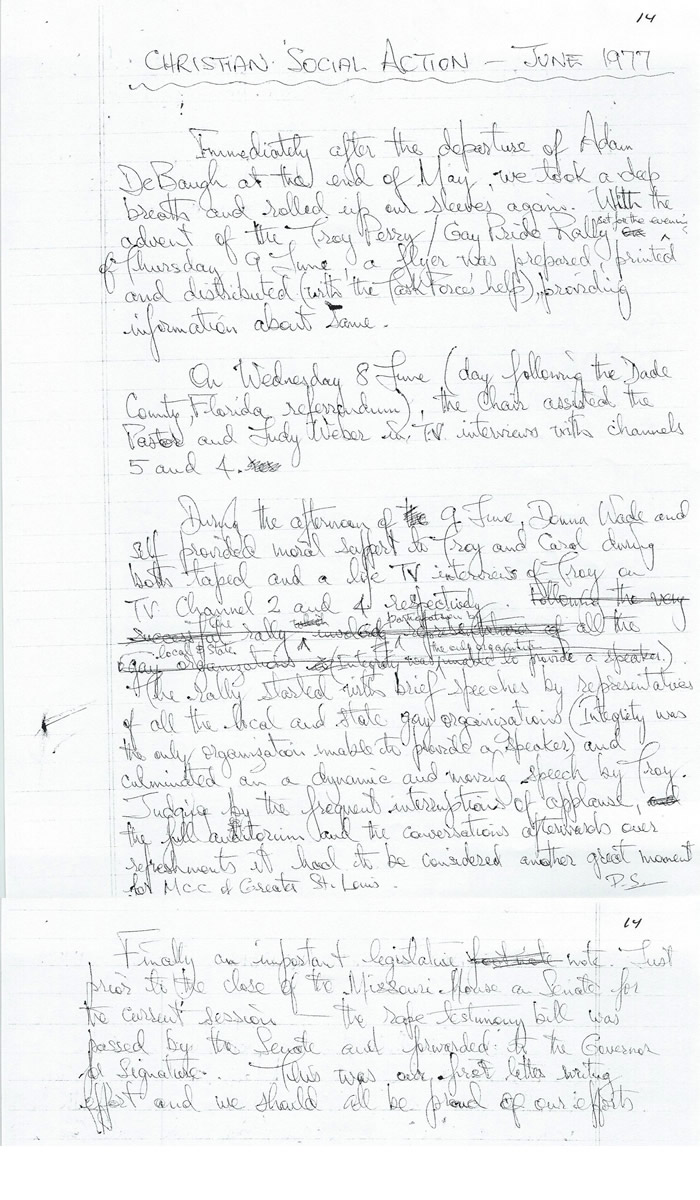 14
CHRISTIAN SOCIAL ACTION – JUNE 1977
Immediately after the departure of Adam
DeBaugh at the end of May, we took a deep
breath and rolled up our sleeves again. With the
advent of the Troy Perry / Gay Pride Rally set for the evening
of Thursday 9 June, a flyer was prepared, printed
and distributed (with the Task Force's help), providing
information about same.
On Wednesday 8 June (day following the Dade
County, Florida referrendum), the Chair assisted the
Pastor and Judy Weber in TV interviews with channels
5 and 4.
During the afternoon of 9 June, Donna Wade and
self provided moral support to Troy and Carol during
both taped and a live TV interviews of Troy on
TV Channel 2 and 4 respectively. Following the very
successful rally involved participation of representatives of all the
local & state
gay organizations (Integrity was the only organization unable to provide a speaker.)
The rally started with brief speeches by representatives
of all the local and state gay organizations (Integrity was
the only organization unable to provide a speaker) and
culminated in a dynamic and moving speech by Troy.
Judging by the frequent interruptions of applause,
the full auditorium and the conversations afterwards over
refreshments it had to be considered another great moment
for MCC of Greater St. Louis. P.S.
14
Finally an important legislative footnote note. Just
prior to the close of the Missouri House an Senate for
the current session — the rape testimony bill was
passed by the Senate and forwarded to the Governor
for Signature. This was our first letter writing
effort and we should all be proud of our efforts.